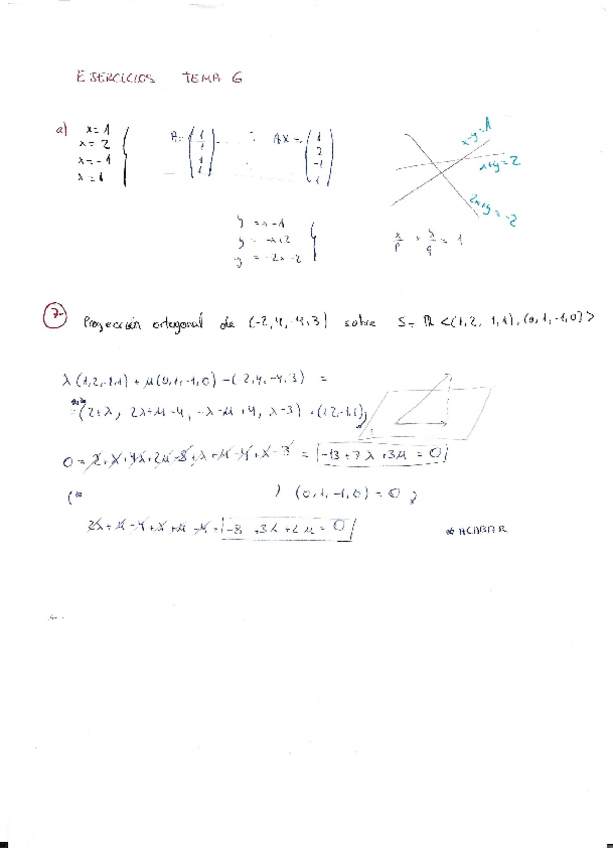 EJERCICIOS TEMA 6
a) x=1
x=2
x=-1
x=1
A= (1 1 1 1) AX = (1 2 -1 1)
x-y=1
x+y=2
2x+y=-2
y = x-1
y = -x+2
y = -2x-2
x/p + y/q = 1
7- Proyección ortogonal de (-2,4,-4,3) sobre S= R <(1,2,-1,1), (0,1,-1,0)>
λ(1,2,-1,1) + μ(0,1,-1,0) - (-2,4,-4,3) =
=(2+λ, 2λ+μ-4, -λ-μ+4, λ-3) · (1,2,-1,1)
0 = 2+λ+4λ+2μ-8+λ+μ-4+λ-3 = -13+7λ+3μ=0
(" ) (0,1,-1,0) = 0
2λ+μ-4+λ+μ-4= -8+3λ+2μ=0
* ACABAR